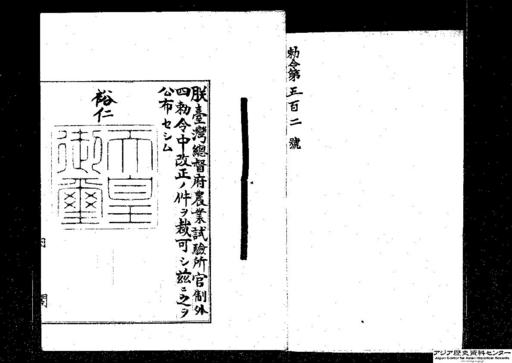 勅令第五百二號
朕臺灣總督府農業試驗所官制外
四勅令中改正ノ件ヲ裁可シ茲ニ之ヲ
公布セシム
裕仁
天皇
御璽
内
閣
アジア歴史資料センター
Japan Center for Asian Historical Records